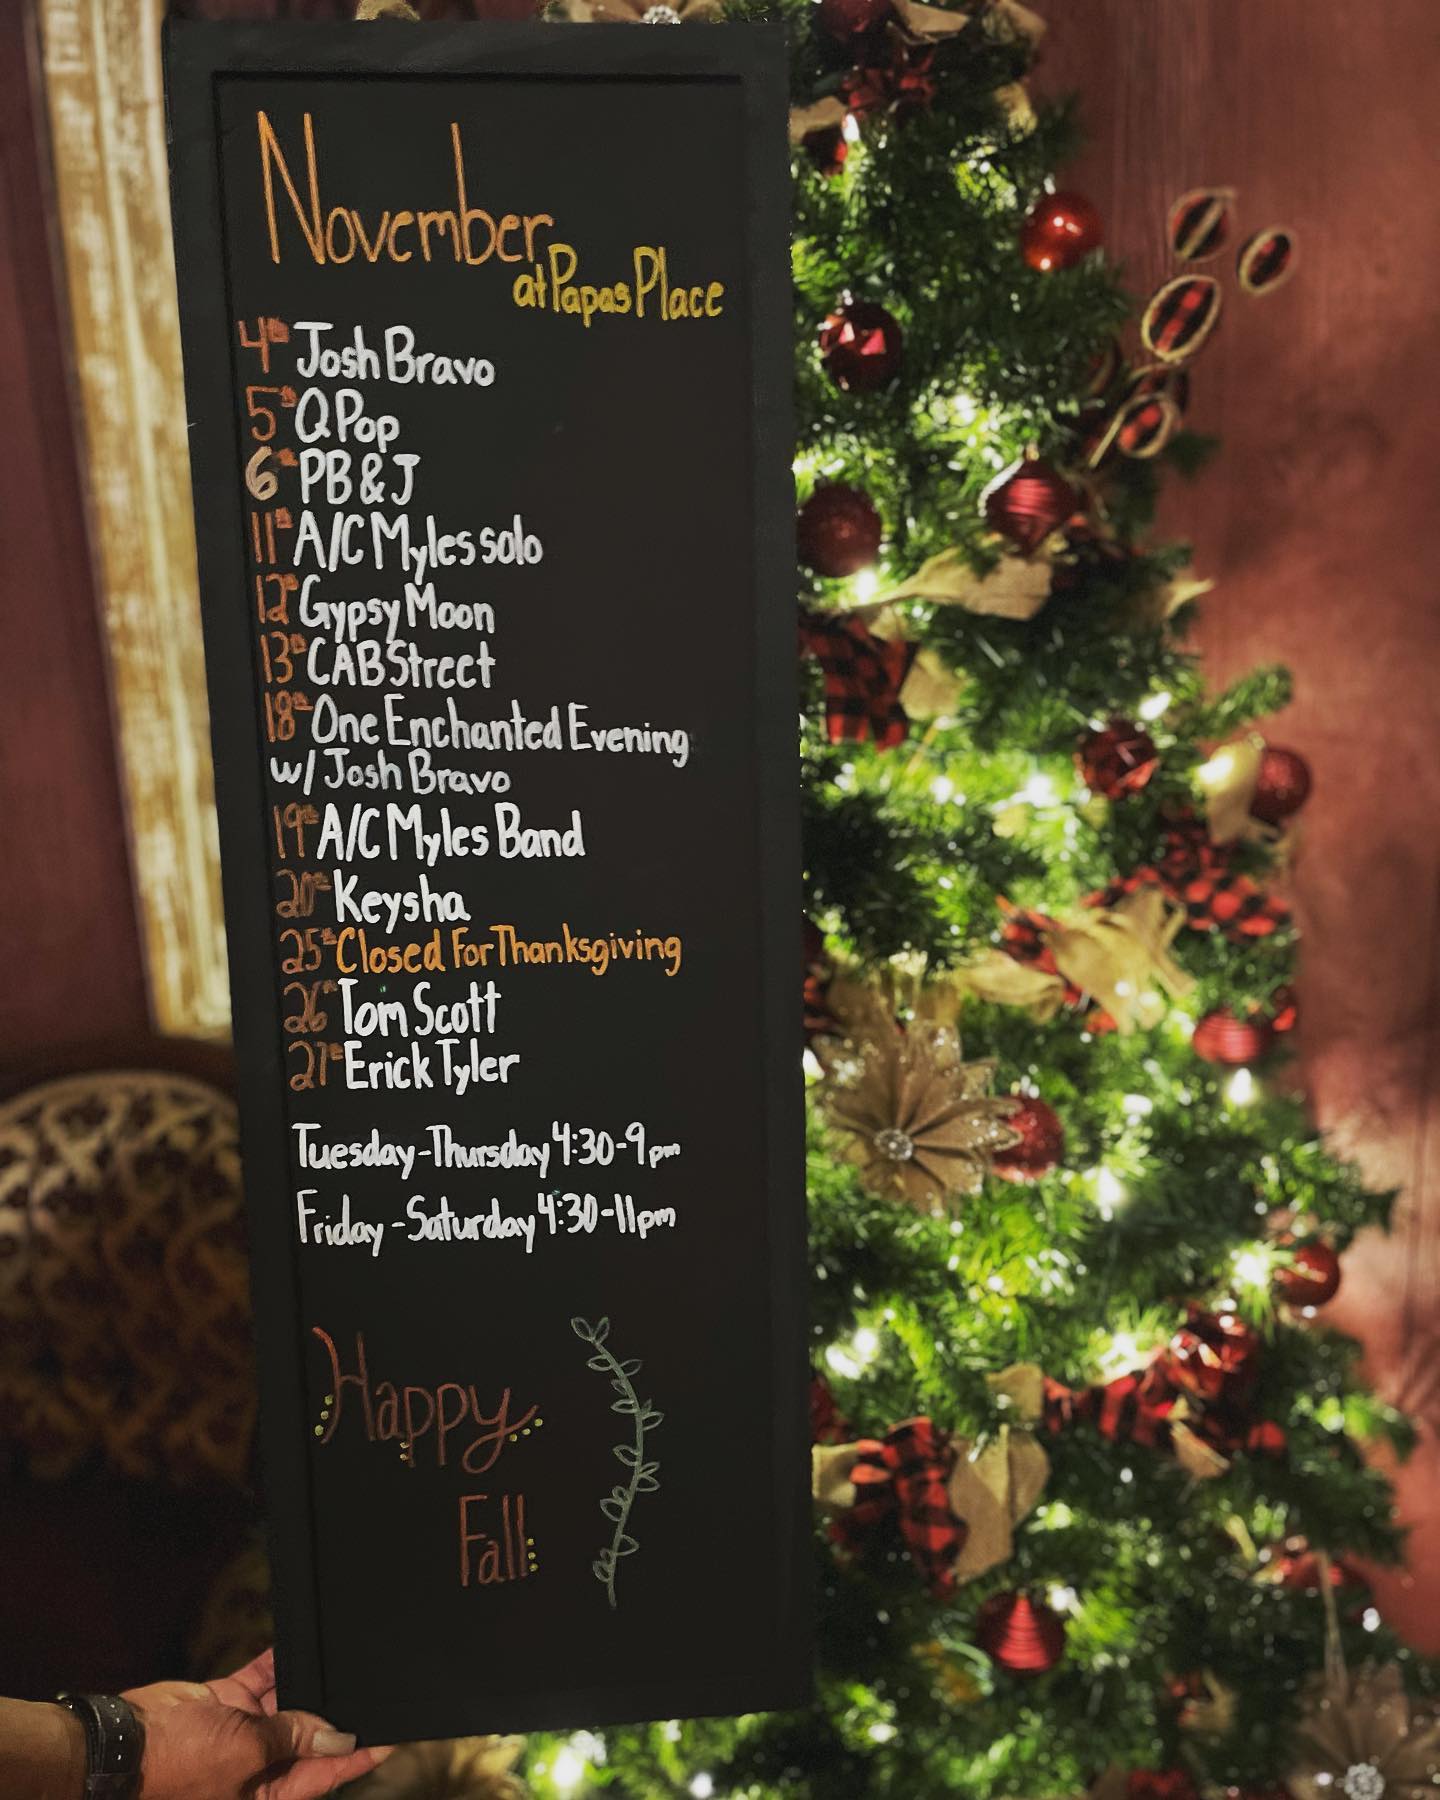 November
at Papas Place
4th Josh Bravo
5th Q Pop
6th PB & J
11th A/C Myles solo
12th Gypsy Moon
13th CAB Street
18th One Enchanted Evening
w/ Josh Bravo
19th A/C Myles Band
20th Keysha
25th Closed For Thanksgiving
26th Tom Scott
27th Erick Tyler
Tuesday-Thursday 4:30-9pm
Friday-Saturday 4:30-11pm
Happy
Fall